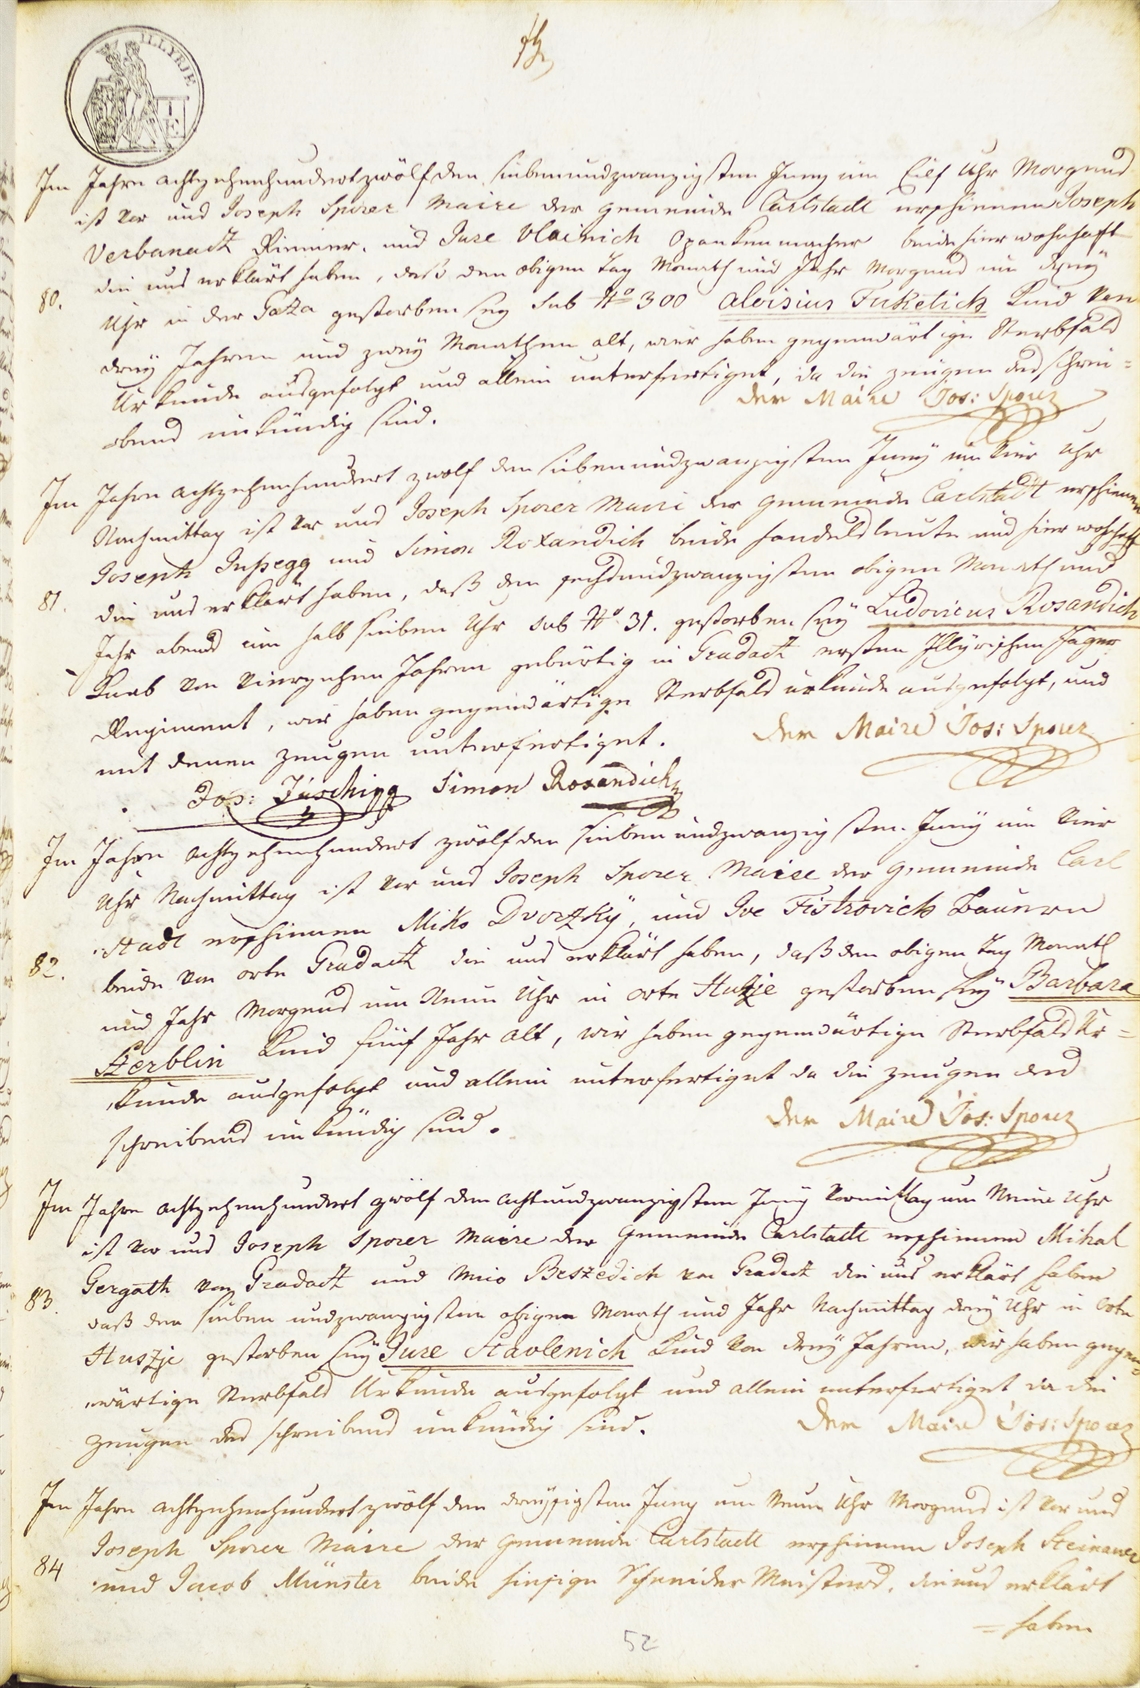 ILLYRIE
Im Jahre achtzehenhundert zwölf den siebenundzwanzigsten Juny um Eilf Uhr Morgens
ist vor uns Joseph Sporer Maire der Gemeinde Carlstadt erschienen Joseph
Verbanack Riemer, und Jure Vlainich Opankenmacher beide hier wohnhaft
die uns erklärt haben, daß den obigen Tag Monath und Jahr Morgens um
80.
Uhr in der Gaza gestorben sey sub No 300 Aloisius Fuketich Kind von
drey Jahren und zwey Monathen alt, wir haben gegenwärtige Sterbfalls
Urkunde ausgefolgt und allein unterfertiget, da die Zeugen des Schrei=
bens unkündig sind.
Der Maire Jos: Sporer
Im Jahre achtzehenhundert zwölf den siebenundzwanzigsten Juny um vier Uhr
Nachmittag ist vor uns Joseph Sporer Maire der Gemeinde Carlstadt erschienen
Joseph und Simon Roxandich beide Handelsleute und hier wohnhaft
81.
die uns erklärt haben, daß den sechsundzwanzigsten obigen Monath und
Jahr abends um halb sieben Uhr sub No 31. gestorben sey Ludovicus Rosandich
Knab von vierzehen Jahren gebürtig in Gradatz ersten Illyrischen Jäger
Regiment, wir haben gegenwärtige Sterbfalls Urkunde ausgefolgt, und
mit denen Zeugen unterfertiget.
Der Maire Jos: Sporer
Jos: Jusching Simon Roxandich
Im Jahre achtzehenhundert zwölf den siebenundzwanzigsten Juny um vier
Uhr Nachmittag ist vor uns Joseph Sporer Maire der Gemeinde Carl
stadt erschienen Miko Dvorzky, und Ive Fistrovich Bauern
82.
beide von orte Gradatz die uns erklärt haben, daß den obigen Tag Monath
und Jahr Morgens um Neun Uhr in orte Huszje gestorben sey Barbara
Herblin Kind fünf Jahr alt, wir haben gegenwärtige Sterbfalls Ur=
kunde ausgefolgt und allein unterfertiget da die Zeugen des
schreibens unkündig sind.
Der Maire Jos: Sporer
Im Jahre achtzehenhundert zwölf den achtundzwanzigsten Juny Vormittag um Neun Uhr
ist vor uns Joseph Sporer Maire der Gemeinde Carlstadt erschienen Mihal
Gergath von Gradatz und Mico Beszedich von Gradatz die uns erklärt haben
83.
daß den siebenundzwanzigsten obigen Monath und Jahr Nachmittag drey Uhr in Orte
Huszje gestorben sey Jure Stavlenich Kind von drey Jahren, wir haben gegen=
wärtige Sterbfalls Urkunde ausgefolgt und allein unterfertiget da die
Zeugen des schreibens unkündig sind.
Der Maire Jos: Sporer
Im Jahre achtzehenhundert zwölf den dreyßigsten Juny um Neun Uhr Morgens ist vor uns
Joseph Sporer Maire der Gemeinde Carlstadt erschienen Joseph Steinauer
84
und Jacob Münster beide hiesige Schneider Meisters, die uns erklärt
=haben
52